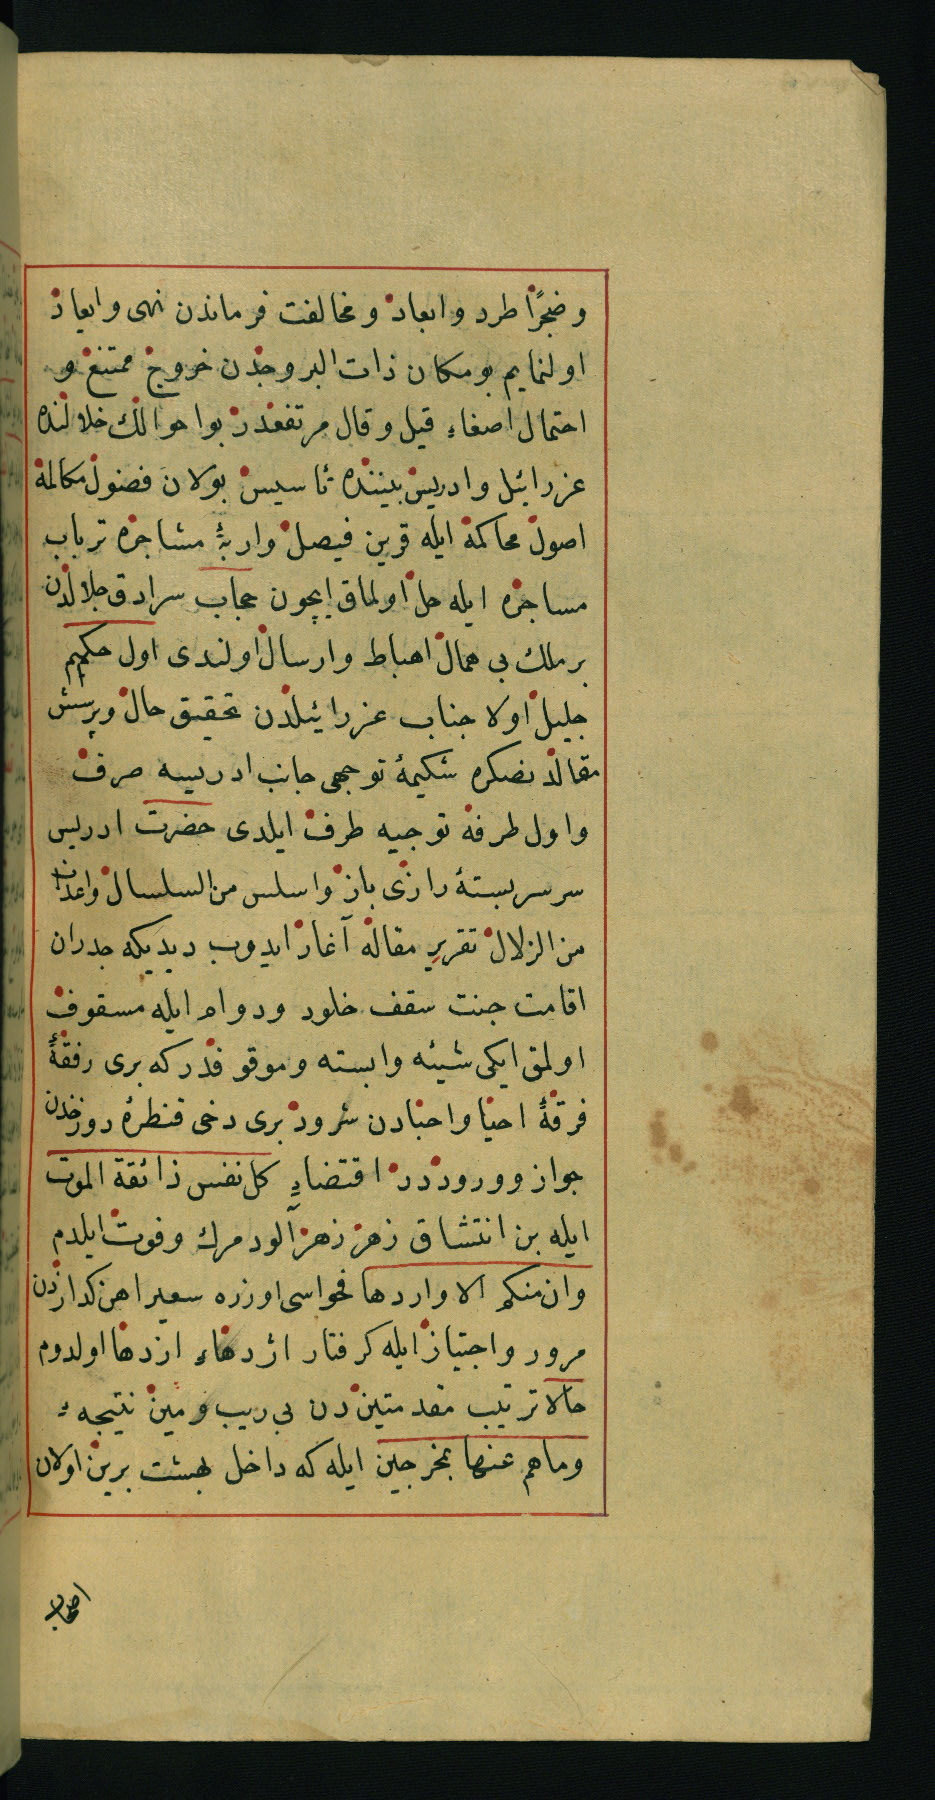 وضجرًا طرد وابعاد ومخالفت فرماندن نهى وايعاد
اولنمايم بو مكان ذات البروجدن خروج ممتنع و
احتمال اصغاء قيل وقال مرتفعدر بو احوالك خلالنده
عزرائيل وادريس بيننده تأسيس بولان فضول مكالمه
اصول محاكمه ايله قرين فيصل واربۀ مشاجره ترباب
مساجره ايله حل اولماق ايچون حجاب سرادق جلالدن
بر ملك بى همال اهباط وارسال اولندى اول حكيم
جليل اولا جناب عزرائيلدن تحقيق حال وپرسش
مقالدنصكره شكيمۀ توجهى جانب ادريسه صرف
واول طرفه توجيه طرف ايلدى حضرت ادريس
سر سربستۀ رازى باز واسلس من السلسال واعذب
من الزلال تقرير مقاله آغاز ايدوب ديديكه جدران
اقامت جنت سقف خلود ودوام ايله مسقوف
اولمق ايكى شيئه وابسته وموقوفدر كه برى رفقۀ
فرقۀ احيا واحبادن شرود برى دخى قنطرۀ دوزخدن
جواز ووروددر اقتضاء كل نفس ذائقة الموت
ايله بن انتشاق زهر زهرآلود مرك وفوت ايلدم
وان منكم الا واردها فحواسى اوزره سعير اهن كدازدن
مرور واجتياز ايله كرفتار اژدهاء ازدها اولدوم
حالا ترتيب مقدمتين دن بى ريب ومين نتيجه ء
وما هم عنها بمخرجين ايله كه داخل بهشت برين اولان
اصحاب